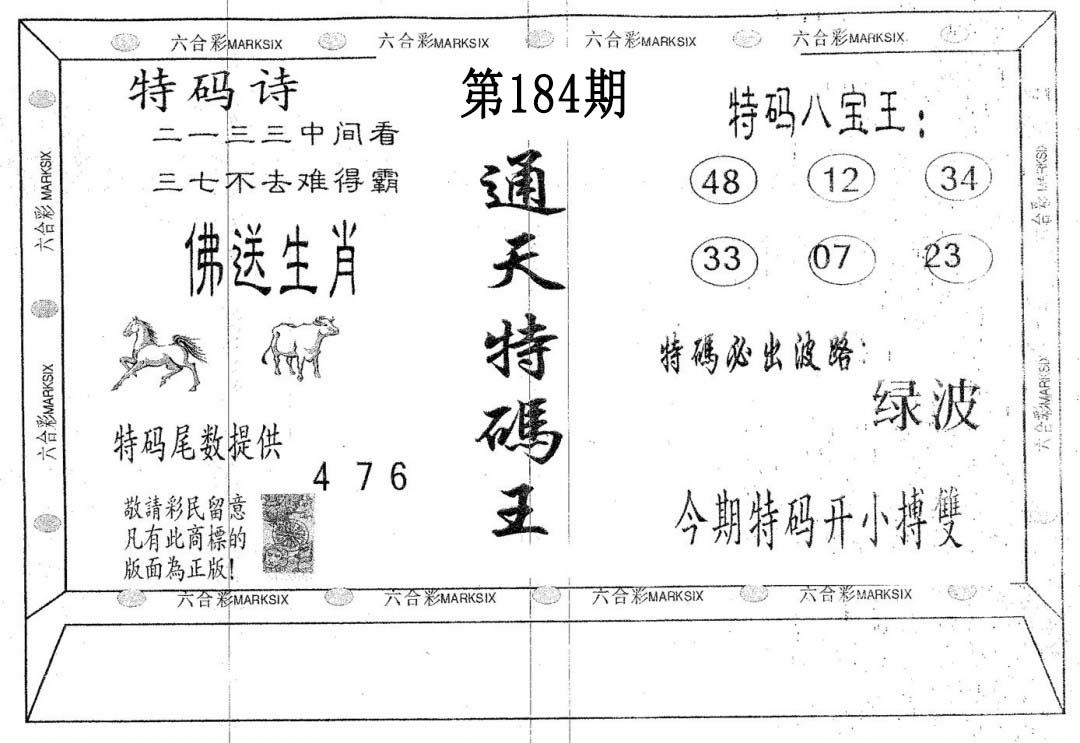 六合彩MARKSIX 六合彩MARKSIX 六合彩MARKSIX 六合彩MARKSIX
特码诗
二一三三中间看
三七不去难得霸
佛送生肖
特码尾数提供
4 7 6
敬請彩民留意
凡有此商標的
版面為正版!
第184期
通天特碼王
特码八宝王:
48 12 34
33 07 23
特碼必出波路:
绿波
今期特码开小搏雙
六合彩MARKSIX
六合彩MARKSIX
六合彩MARKSIX
六合彩MARKSIX
六合彩MARKSIX 六合彩MARKSIX 六合彩MARKSIX 六合彩MARKSIX